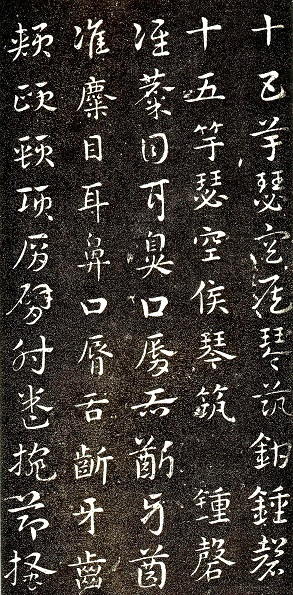 十五竽瑟空侯琴筑鍾磬
十五竽瑟空侯琴筑鍾磬
准麋目耳鼻口脣舌齗牙齒
准麋目耳鼻口脣舌齗牙齒
頰頤頸項肩臂肘卷捥節搔